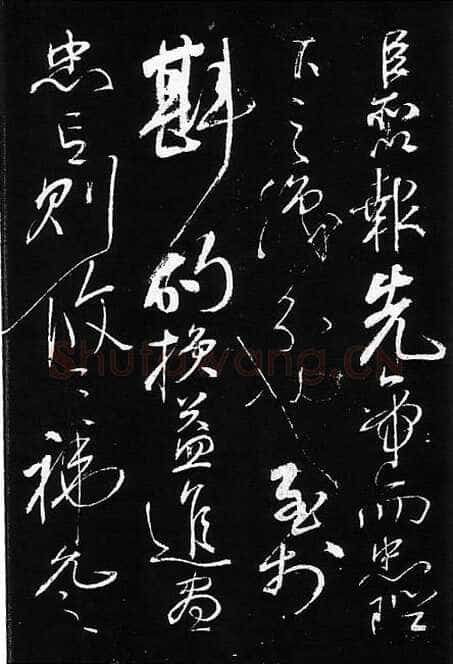 臣所以報先帝而忠陛
下之職分也至於
斟酌損益進盡
忠言則攸之禕允之
Shufawang.CN